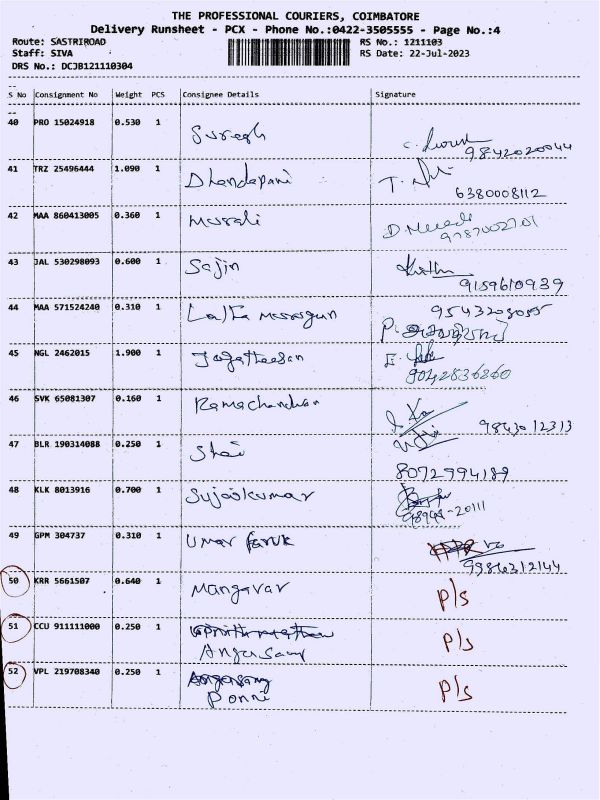 THE PROFESSIONAL COURIERS, COIMBATORE
Delivery Runsheet - PCX - Phone No.:0422-3505555 - Page No.:4
Route: SASTRIROAD RS No.: 1211103
Staff: SIVA RS Date: 22-Jul-2023
DRS No.: DCJB121110304
S No Consignment No Weight PCS Consignee Details Signature
40 PRO 15024918 0.530 1 Suresh
9842020044
41 TRZ 25496444 1.090 1 Dhandapani
6380008112
42 MAA 860413005 0.360 1 Murali
43 JAL 530298093 0.600 1 Sajin
9159610939
44 MAA 571524240 0.310 1
45 NGL 2462015 1.900 1 Jagatheesan
9042836860
46 SVK 65081307 0.160 1 Ramachandran
9843012313
47 BLR 190314088 0.250 1
8072994189
48 KLK 8013916 0.700 1
49 GPM 304737 0.310 1 Umar Faruk
9986312144
50 KRR 5661507 0.640 1 P/s
51 CCU 911111000 0.250 1 P/s
52 VPL 219708340 0.250 1 P/s
Ponni